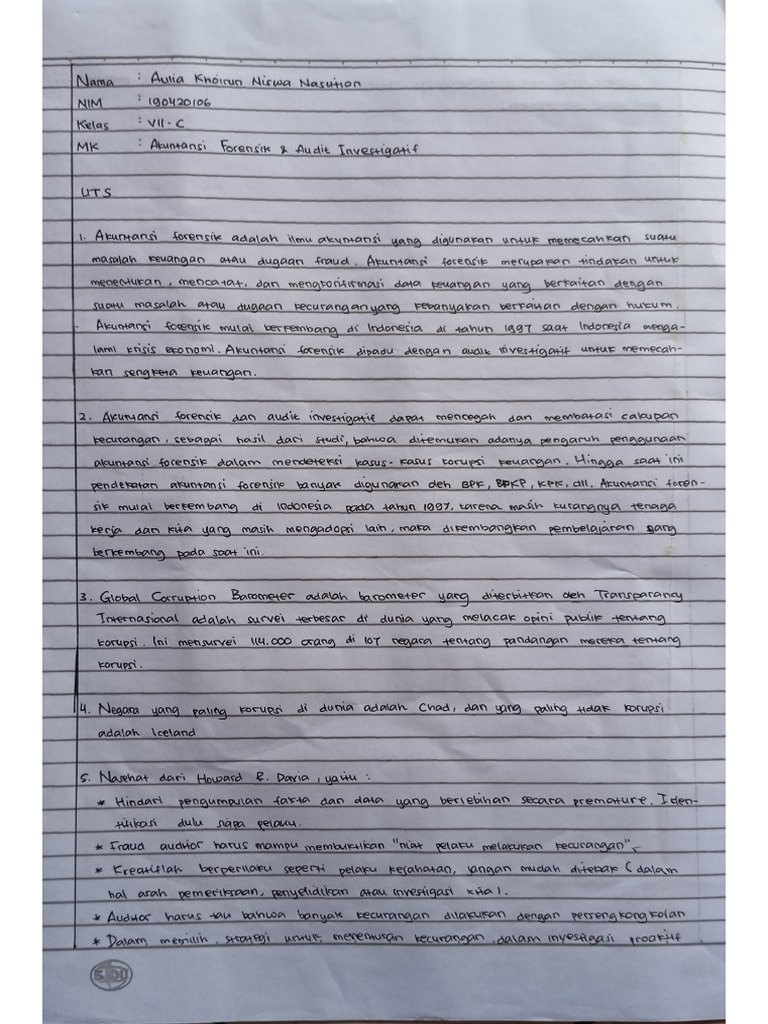 Nama : Aulia Khoirun Niswa Nasution
NIM : 190420106
Kelas : VII-C
MK : Akuntansi Forensik & Audit Investigatif
UTS
1. Akuntansi forensik adalah ilmu akuntansi yang digunakan untuk memecahkan suatu
masalah keuangan atau dugaan fraud. Akuntansi forensik merupakan tindakan untuk
menentukan, mencatat, dan mengkonfirmasi data keuangan yang berkaitan dengan
suatu masalah atau dugaan kecurangan yang kebanyakan berkaitan dengan hukum.
Akuntansi forensik mulai berkembang di Indonesia di tahun 1997 saat Indonesia menga-
lami krisis ekonomi. Akuntansi forensik dipadu dengan audit investigatif untuk memecah-
kan sengketa keuangan.
2. Akuntansi forensik dan audit investigatif dapat mencegah dan membatasi cakupan
kecurangan, sebagai hasil dari studi, bahwa ditemukan adanya pengaruh penggunaan
akuntansi forensik dalam mendeteksi kasus-kasus korupsi keuangan. Hingga saat ini
pendekatan akuntansi forensik banyak digunakan oleh BPK, BPKP, KPK, dll. Akuntansi foren-
sik mulai berkembang di Idonesia pada tahun 1997. karena masih kurangnya tenaga
kerja dan kita yang masih mengadopsi lain, maka dikembangkan pembelajaran yang
berkembang pada saat ini.
3. Global Corruption Barometer adalah barometer yang diterbitkan oleh Transparancy
Internasional adalah survei terbesar di dunia yang melacak opini publik tentang
korupsi. Ini mensurvei 114.000 orang di 107 negara tentang pandangan mereka tentang
korupsi.
4. Negara yang paling korupsi di dunia adalah Chad, dan yang paling tidak korupsi
adalah Iceland
5. Nasehat dari Howard R. Davia, yaitu :
* Hindari pengumpulan fakta dan data yang berlebihan secara premature. Iden-
tifikasi dulu siapa pelaku.
* Fraud auditor harus mampu membuktikan "niat pelaku melakukan kecurangan".
* Kreatiflah berperilaku seperti pelaku kejahatan, jangan mudah ditebak (dalam
hal arah pemeriksaan, penyelidikan atau investigasi kita).
* Auditor harus tau bahwa banyak kecurangan dilakukan dengan persengkongkolan
* Dalam memilih strategi untuk menemukan kecurangan dalam investigasi proaktif